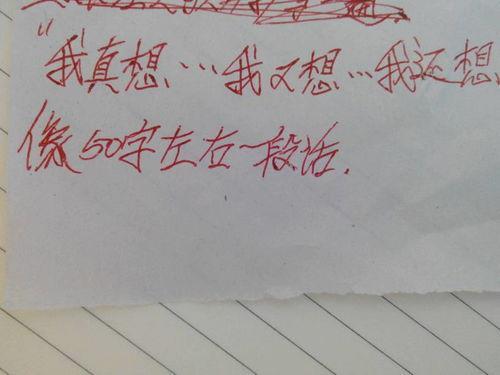 "我真想…我又想…我还想
像50字左右一段话.